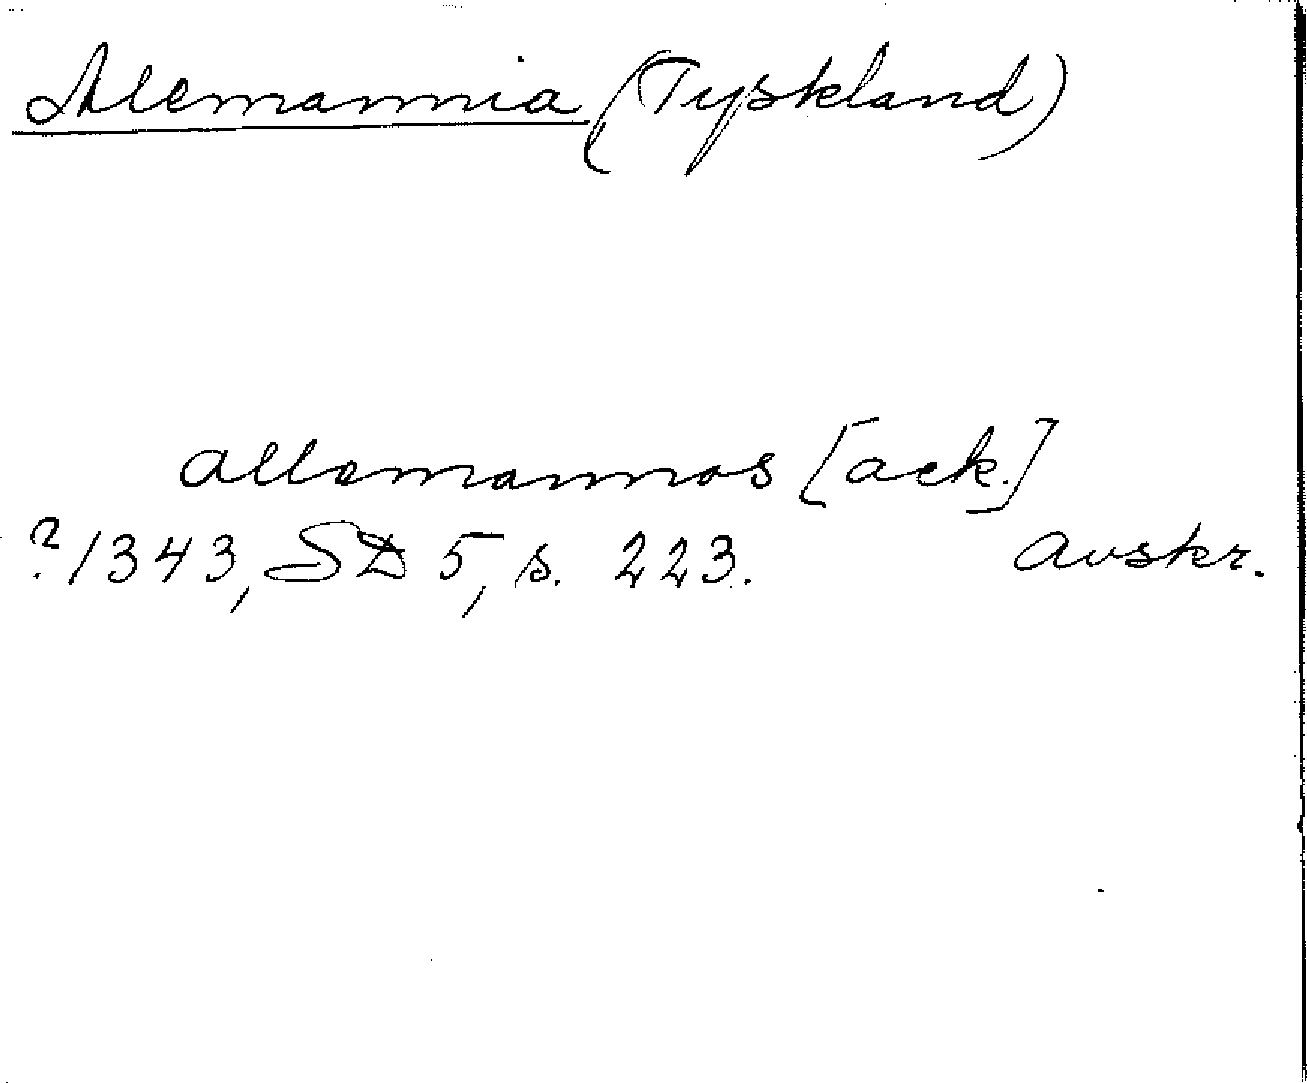 Alemannia (Tyskland)
allemannos [ack.]
? 1343, SD 5, s. 223. avskr.